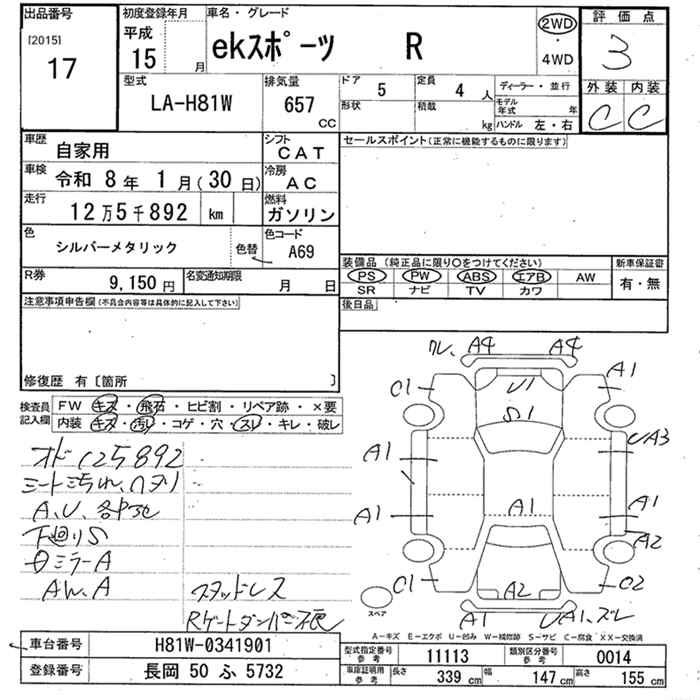 出品番号
[2015]
17
初度登録年月
平成
15 月
車名・グレード
ekスポーツ R
2WD
4WD
評価点
3
外装 内装
C C
型式
LA-H81W
排気量
657
CC
ドア 5
形状
定員 4 人
積載 kg
ディーラー・並行
モデル年式 年
ハンドル 左・右
車歴
自家用
シフト
CAT
車検
令和 8年 1月(30日)
冷房
AC
走行
12万5千892 km
燃料
ガソリン
色
シルバーメタリック
色替
色コード
A69
R券
9,150円
名変通知期限
月 日
セールスポイント(正常に機能するものに限ります)
装備品(純正品に限り○をつけてください)
新車保証書
PS PW ABS エアB AW
SR ナビ TV カワ
有・無
後日品
注意事項申告欄(不具合内容等は具体的に記入して下さい)
修復歴 有〔箇所 〕
検査員
記入欄
FW キズ・飛石・ヒビ割・リペア跡・×要
内装 キズ・汚レ・コゲ・穴・スレ・キレ・破レ
オド125892
シート汚れ、ヘタリ
A、U、各部
下廻りS
ミラーA
AW、A
スタッドレス
Rゲートダンパー不良
A4 A4
C1 U1 A1
S1
A1 UA3
A1 A1 A1
A2
C1 A2 C2
A1 UA1、ズレ
スペア
A-キズ E-エクボ U-凹み W-補修跡 S-サビ C-腐食 XX-交換済
車台番号
H81W-0341901
登録番号
長岡 50 ふ 5732
型式指定番号
参考
11113
類別区分番号
参考
0014
車庫証明用
参考
長さ 339 cm
幅 147 cm
高さ 155 cm